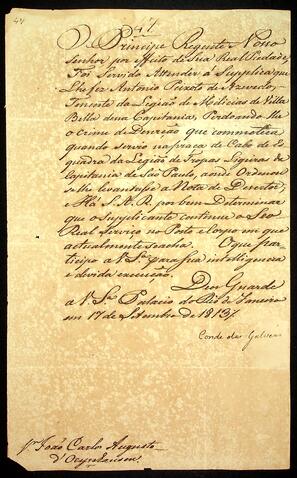 47
O Principe Regente Nosso
Senhor por effeito de Sua Real Piedade,
Foi Servido Attender á Supplica que
Lhe fez Antonio Peixoto de Azevedo,
Tenente da Legião de Milicias de Villa
Bella dessa Capitania, Perdoando-lhe
o crime de Deserção que commettera
quando servio na praça de Cabo de Es-
quadra da Legião de Tropas Ligeiras da
Capitania de São Paulo, aonde Ordenou
se lhe levantasse a Nota de Desertor;
e Há S. A. R. por bem Determinar
que o Supplicante continue o Seo
Real Serviço no Posto e Corpo em que
actualmente se acha. O que par-
ticipo a V. S.ª para sua intelligencia
e devida execução.
Deos Guarde
a V. S.ª Palacio do Rio de Janeiro
em 17 de Setembro de 1813
Conde das Galveas
Sr. João Carlos Augusto
d'Oeynhausen